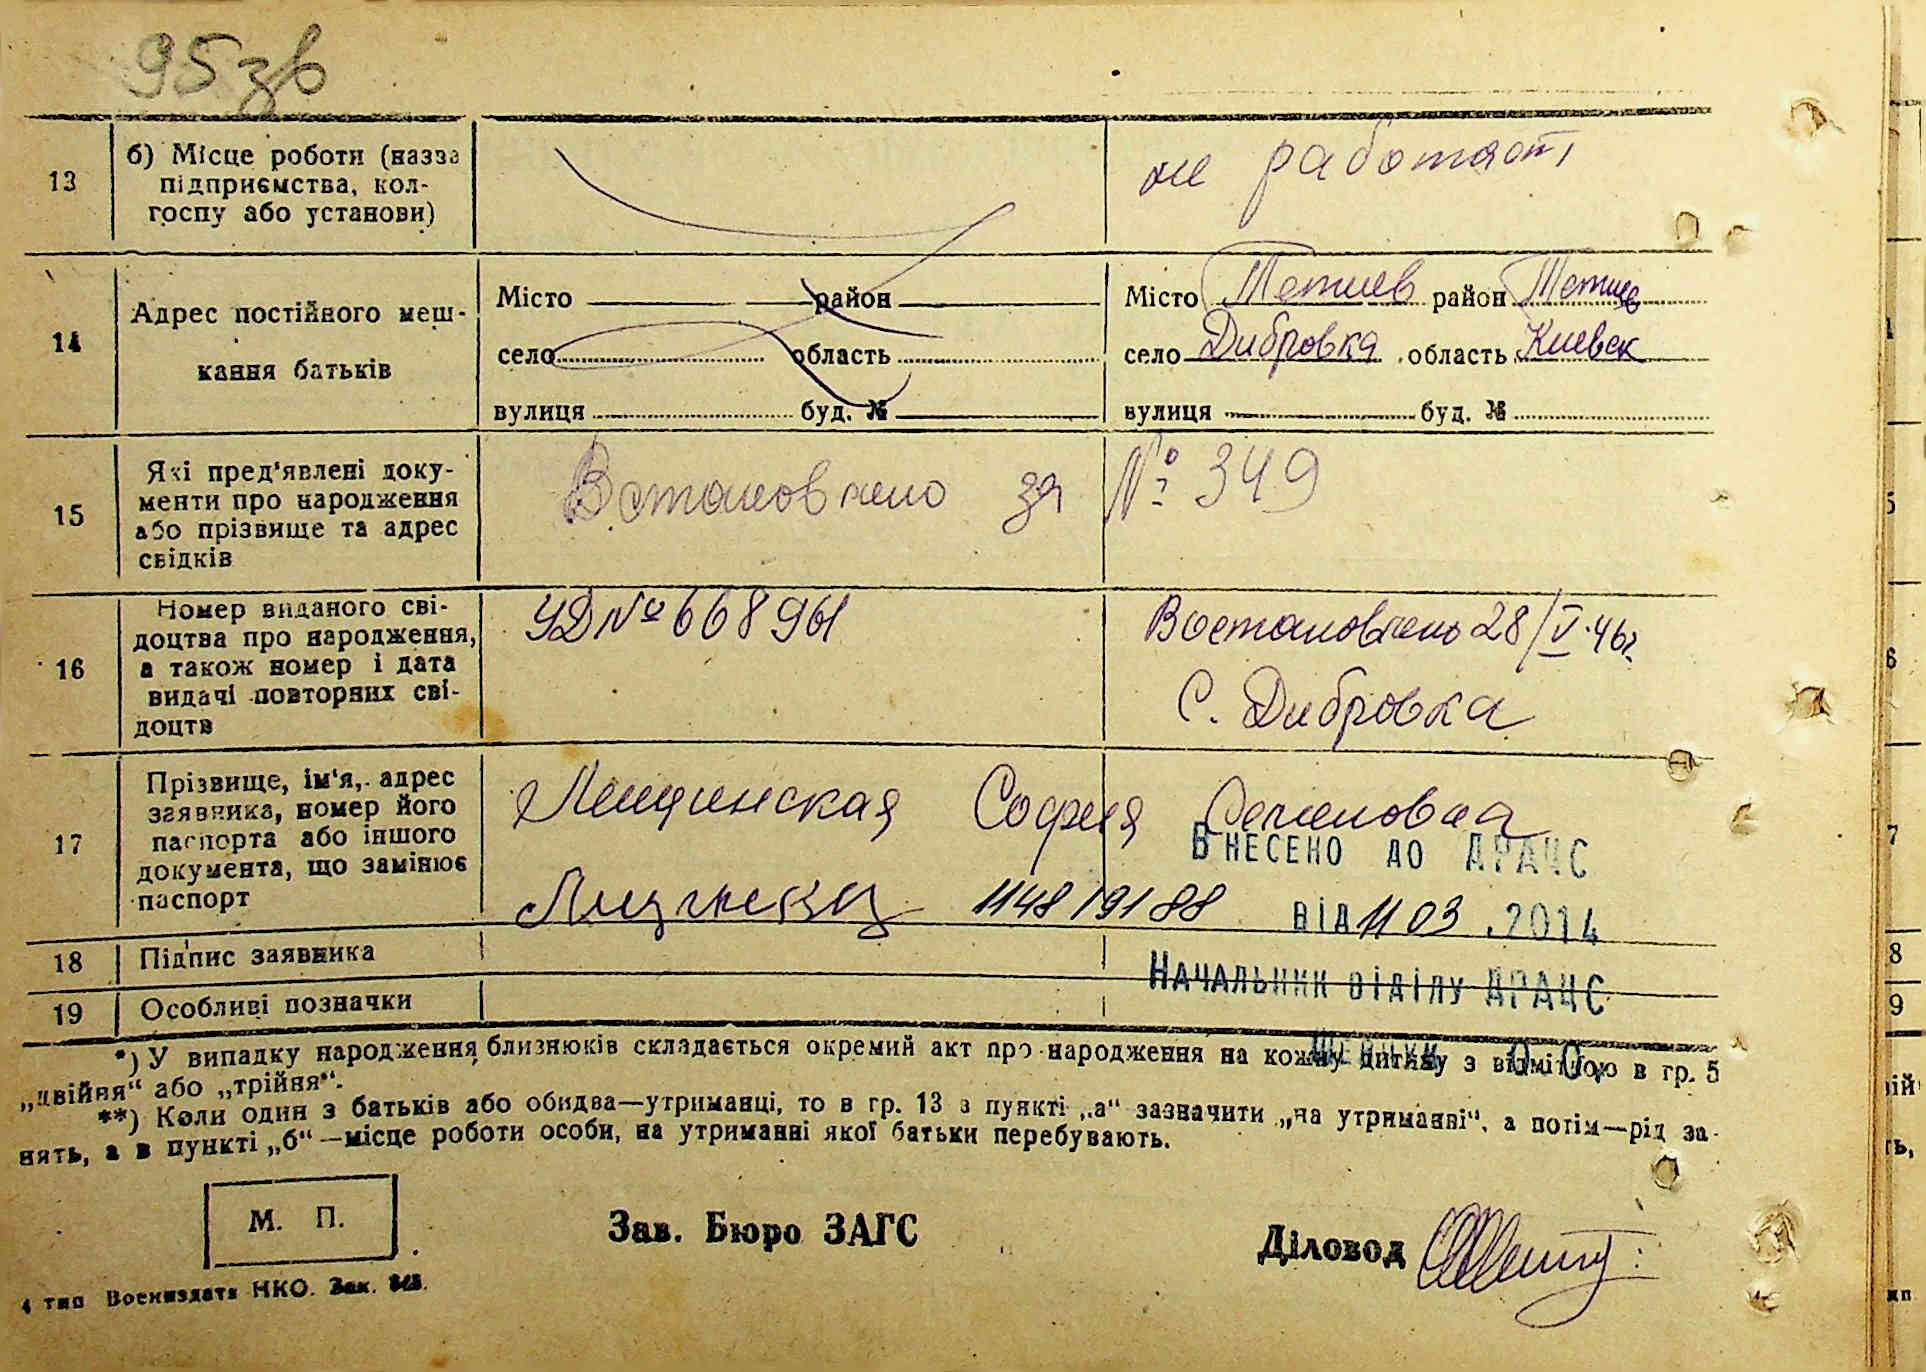 95 зв
13
б) Місце роботи (назва
підприємства, кол-
госпу або установи)
не работает
14
Адрес постійного меш-
кання батьків
Місто район
село область
вулиця буд. №
Місто Тетиев район Тетиев
село Дибровка область Киевск
вулиця буд. №
15
Які пред'явлені доку-
менти про народження
або прізвище та адрес
свідків
Встановлено за № 349
16
Номер виданого сві-
доцтва про народження,
а також номер і дата
видачі повторних сві-
доцтв
УД №
Востановлено 28/V-46г.
С. Дибровка
17
Прізвище, ім'я, адрес
заявника, номер його
паспорта або іншого
документа, що замінює
паспорт
Лещинская София Семеновна
ВНЕСЕНО ДО ДРАЦС
від 11 03 .2014
18
Підпис заявника
НАЧАЛЬНИК ВІДІЛУ ДРАЦС
19
Особливі позначки
*) У випадку народження близнюків складається окремий акт про народження на кожну дитину з відміткою в гр. 5
„двійня“ або „трійня“.
**) Коли один з батьків або обидва—утриманці, то в гр. 13 в пункті „а“ зазначити „на утриманні“, а потім—рід за-
нять, а в пункті „б“—місце роботи особи, на утриманні якої батьки перебувають.
М. П.
Зав. Бюро ЗАГС
Діловод
4 тип Воениздата НКО. Зак.